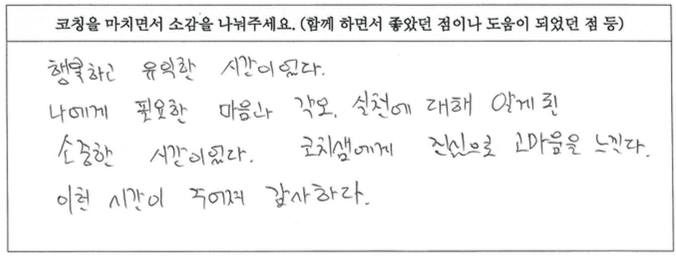 코칭을 마치면서 소감을 나눠주세요. (함께 하면서 좋았던 점이나 도움이 되었던 점 등)
행복하고 유익한 시간이었다.
나에게 필요한 마음과 각오, 실천에 대해 알게 된
소중한 시간이었다. 코치샘에게 진심으로 고마움을 느낀다.
이런 시간이 주어져 감사하다.